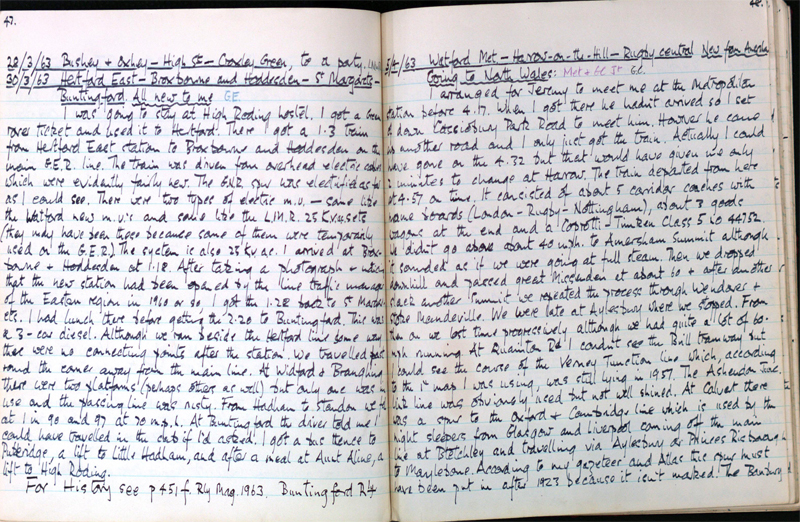 47.
28/3/63 Bushey & Oxhey – High St – Croxley Green, to a party.
30/3/63 Hertford East – Broxbourne and Hoddesdon – St Margarets –
Buntingford All new to me GE
I was going to stay at High Roding hostel. I got a Green
rover ticket and used it to Hertford. There I got a 1.3 train
from Hertford East station to Broxbourne and Hoddesdon on the
main G.E.R. line. The train was driven from overhead electric cables
which were evidently fairly new. The G.N.R. spur was electrified as far
as I could see. There were two types of electric m.u. – some like
the Watford new m.u.'s and some like the L.M.R. 25 Kv sets
(they may have been these because some of them were temporarily
used on the G.E.R.) The system is also 25 kv ac. I arrived at Brox-
bourne & Hoddesdon at 1.18. After taking a photograph &
that the new station had been opened by the line traffic manager
of the Eastern region in 1960 or so I got the 1.28 back to St Margar-
ets. I had lunch there before getting the 2.20 to Buntingford. This was
a 3-car diesel. Although we ran beside the Hertford line some way
there were no connecting points after the station. We travelled fast
round the corner away from the main line. At Widford & Braughing
there were two platforms (perhaps others as well) but only one was in
use and the passing line was rusty. From Hadham to Standon we
at 1 in 90 and 97 at 70 m.p.h. At Buntingford the driver told me I
could have travelled in the cab if I'd asked. I got a bus thence to
Puckeridge, a lift to Little Hadham, and after a meal at Aunt Aline, a
lift to High Roding.
For History see p 451 f. Rly Mag. 1963. Buntingford
48.
5/4/63 Watford Met – Harrow-on-the-Hill – Rugby central New from Amersham
Going to North Wales: Met & GC Jt GC.
I arranged for Jeremy to meet me at the Metropolitan
station before 4.17. When I got there he hadnt arrived so I set
off down Cassiobury Park Road to meet him. However he came
another road and I only just got the train. Actually I could
have gone on the 4.32 but that would have given me only
2 minutes to change at Harrow. The train departed from here
at 4.57 on time. It consisted of about 5 corridor coaches with
name boards (London – Rugby – Nottingham), about 3 goods
wagons at the end and a Caprotti – Timken Class 5 no 44752.
We didn't go above about 40 mph. to Amersham Summit although
it sounded as if we were going at full steam. Then we dropped
downhill and passed great Missenden at about 60 & after another
slack another summit we repeated the process through Wendover &
Stoke Mandeville. We were late at Aylesbury where we stopped. From
then on we lost time progressively although we had quite a lot of 60-
mph running. At Quainton Rd I couldn't see the Brill tramway but
I could see the course of the Verney Junction line which, according
to the 1" map I was using, was still lying in 1957. The Ashendon Junc.
line was obviously used but not well shined. At Calvert there
was a spur to the Oxford & Cambridge line which is used by the
night sleepers from Glasgow and Liverpool coming off the main
line at Bletchley and travelling via Aylesbury or Princes Risborough
to Marylebone. According to my gazeteer and Atlas this spur must
have been put in after 1923 because it isn't marked. The Banbury